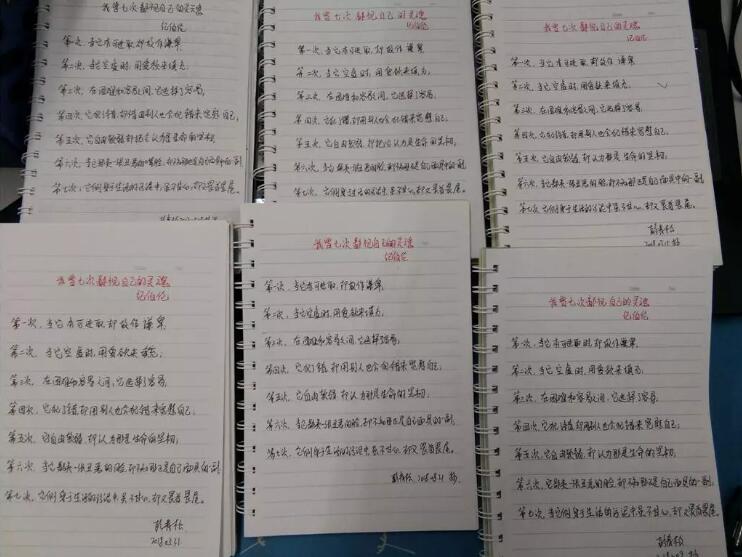 我曾七次鄙视自己的灵魂
纪伯伦
第一次,当它有可进取,却故作谦卑
第二次,当它空虚时,用爱欲来填充;
第三次,在困难和容易之间,它选择了容易;
第四次,它犯错,却借由别人也会犯错来宽慰自己;
第五次,它自由软弱,却把它认为是生命的坚韧;
第六次,当它鄙夷一张丑恶的脸,却不知那正是自己面具中的一副;
第七次,它侧身于生活的污泥中虽不甘心,却又畏首畏尾。
我曾七次鄙视自己的灵魂
纪伯伦
第一次,当它有可进取,却故作谦卑
第二次,当它空虚时,用爱欲来填充;
第三次,在困难和容易之间,它选择了容易;
第四次,它犯错,却借由别人也会犯错来宽慰自己;
第五次,它自由软弱,却把它认为是生命的坚韧;
第六次,当它鄙夷一张丑恶的脸,却不知那正是自己面具中的一副;
第七次,它侧身于生活的污泥中虽不甘心,却又畏首畏尾。
我曾七次鄙视自己的灵魂
纪伯伦
第一次,当它有可进取时,却故作谦卑
第二次,当它空虚时,用爱欲来填充;
第三次,在困难和容易之间,它选择了容易;
第四次,它犯错,却借由别人也会犯错来宽慰自己;
第五次,它自由软弱,却认为是生命的坚韧;
第六次,当它鄙夷一张丑恶的脸,却不知那正是自己面具中的一副;
第七次,它侧身于生活的污泥中虽不甘心,却又畏首畏尾。
我曾七次鄙视自己的灵魂
纪伯伦
第一次,当它有可进取时,却故作谦卑
第二次,当它空虚时,用爱欲来填充;
第三次,在困难和容易之间,它选择了容易;
第四次,它犯错,却借由别人也会犯错来宽慰自己;
第五次,它自由软弱,却认为那是生命的坚韧;
第六次,当它鄙夷一张丑恶的脸,却不知那正是自己面具的一副
第七次,它侧身于生活的污泥中虽不甘心,却又畏首畏尾。
我曾七次鄙视自己的灵魂
纪伯伦
第一次,当它有可进取时,却故作谦卑
第二次,当它空虚时,用爱欲来填充;
第三次,在困难和容易之间,它选择了容易;
第四次,它犯了错,却用别人也会犯错来宽慰自己;
第五次,它自由软弱,却认为那是生命的坚韧;
第六次,当它鄙夷一张丑恶的脸,却不知那正是自己面具的一副;
第七次,它侧身于生活的污泥中虽不甘心,却又畏首畏尾。
我曾七次鄙视自己的灵魂
纪伯伦
第一次,当它有可进取时,却故作谦卑
第二次,当它空虚时,用爱欲来填充;
第三次,在困难和容易之间,它选择了容易;
第四次,它犯错,却借由别人也会犯错来宽慰自己;
第五次,它自由软弱,却认为是生命的坚韧;
第六次,它鄙夷一张丑恶的脸,却不知那正是自己面具的一副;
第七次,当它侧身于生活的污泥中虽不甘心,却又畏首畏尾。